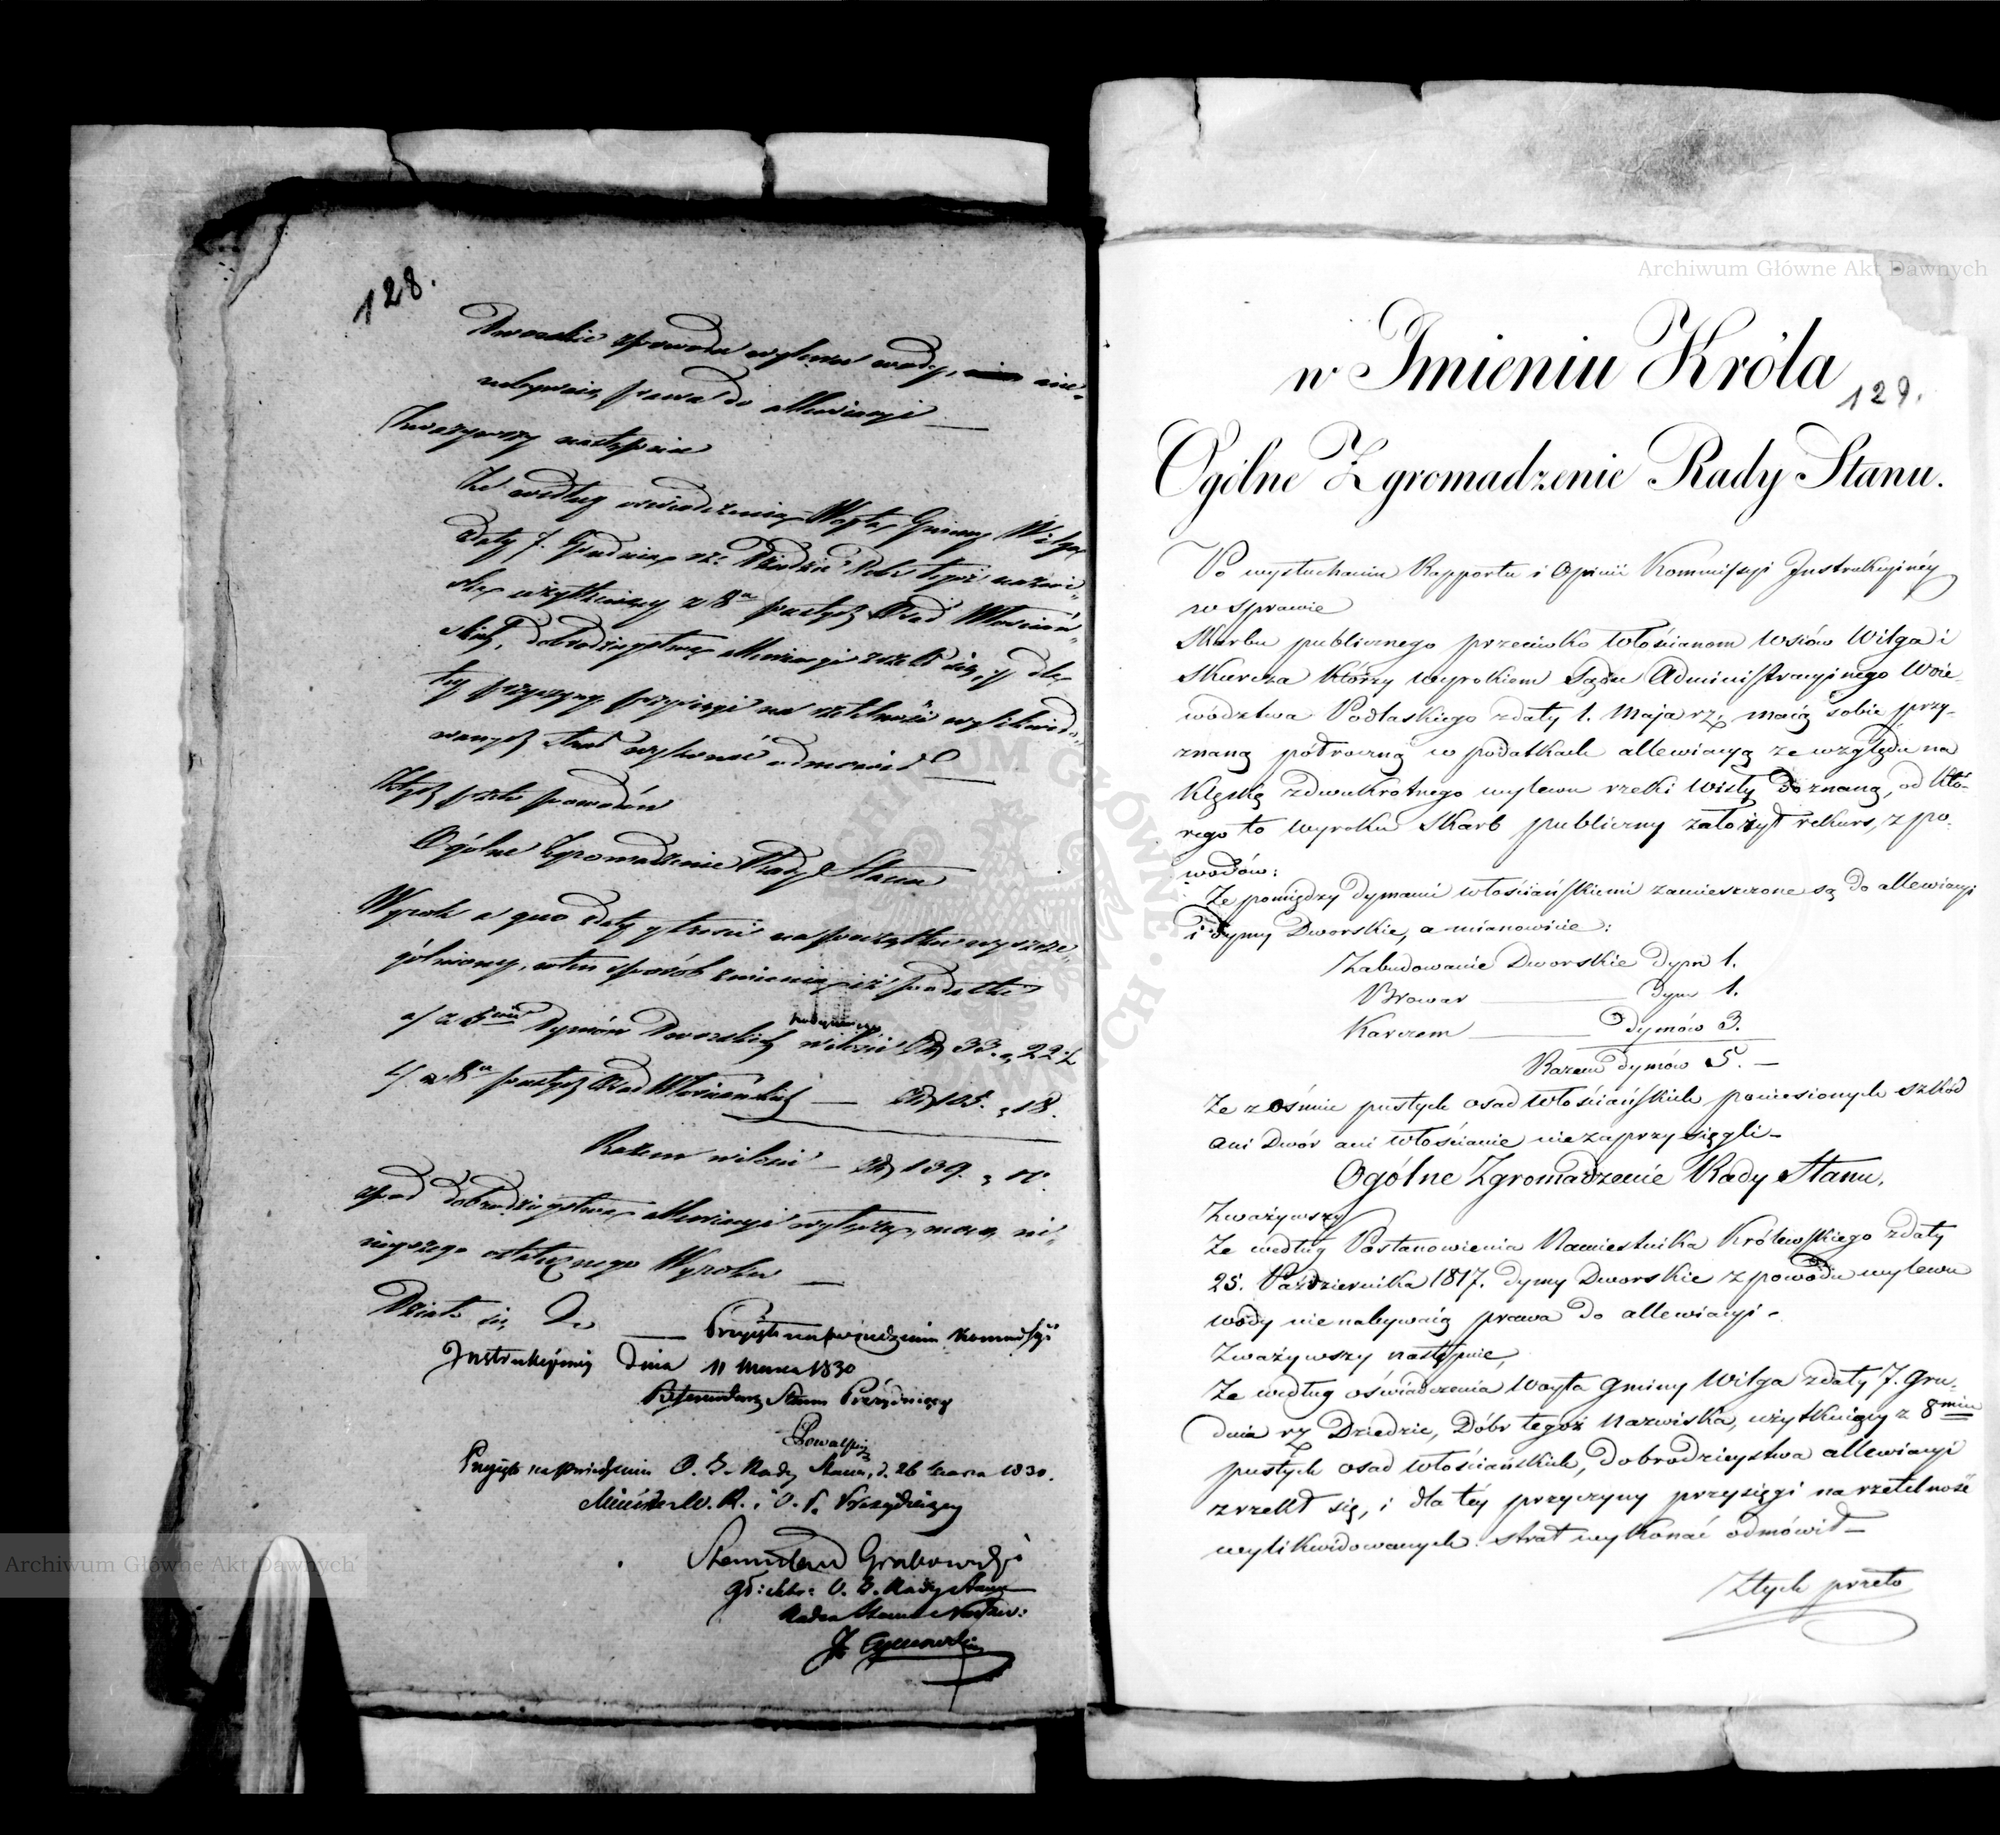 128.
Dworskie z powodu wylewu wody, nie
nabywaią prawa do allewiacyi
Zważywszy następnie
Że według oświadczenia Woyta Gminy Wilga
z daty 7. Grudnia rz. Dziedzic Dóbr tegoż nazwi-
ska użytkuiący z 8u pustych Osad Włościań-
skich, dobrodzieystwa allewiacyi zrzekł się, i dla
tey przyczyny przysięgi na rzetelność wylikwido-
wanych strat wykonać odmówił
Z tych przeto powodów
Ogólne Zgromadzenie Rady Stanu
Wyrok a quo z daty i treści na początku wyszcze-
gólniony, w ten sposób zmienia, iż podatki
a/ z 5ciu Dymów Dworskich w ilości Złp 33. " 22.
b/ z 8u pustych Osad Włościańskich — Złp 105. " 18.
Razem w ilości — Złp 139. "
z pod dobrodzieystwa allewiacyi wyłącza, mocą ni-
nieyszego ostatecznego Wyroku
Działo się Dn
Przyięto na posiedzeniu Kommissyi
Instrukcyiney dnia 11 Marca 1830
Referendarz Stanu Prezyduiący
Przyięto na posiedzeniu O. Z. Rady Stanu, d. 26 Marca 1830.
Minister W. R. i O. P. Prezyduiący
Stanisław Grabowski
O. Z. Rady Stanu
Radca Stanu
w Imieniu Króla
129.
Ogólne Zgromadzenie Rady Stanu.
Po wysłuchaniu Rapportu i Opinii Kommissyi Instrukcyiney
w sprawie
Skarbu publicznego przeciwko Włościanom Wsiów Wilga i
Skurcza którzy wyrokiem Sądu Administracyinego Woie-
wództwa Podlaskiego z daty 1. Maja rz. maią sobie przy-
znaną półroczną w podatkach allewiacyą ze względu na
Klęskę z dwukrotnego wylewu rzeki Wisły doznaną, od któ-
rego to Wyroku Skarb publiczny założył rekurs, z po-
wodów:
Że pomiędzy dymami włościańskiemi zamieszczone są do allewiacyi
i dymy Dworskie, a mianowicie:
Zabudowanie Dworskie dym 1.
Browar — dym 1.
Karczem — Dymów 3.
Razem dymów 5. —
Że z ośmiu pustych osad włościańskich poniesionych szkód
ani Dwór ani włościanie niezaprzysięgli —
Ogólne Zgromadzenie Rady Stanu.
Zważywszy
Że według Postanowienia Namiestnika Królewskiego z daty
25. Października 1817. dymy Dworskie z powodu wylewu
wody nie nabywaią prawa do allewiacyi.
Zważywszy następnie,
Że według oświadczenia Woyta Gminy Wilga z daty 7. Gru-
dnia rz. Dziedzic, Dóbr tegoż Nazwiska, użytkuiący z 8miu
pustych osad włościańskich, dobrodzieystwa allewiacyi
zrzekł się, i dla téy przyczyny przysięgi na rzetelność
wylikwidowanych strat wykonać odmówił —
Z tych przeto
Archiwum Główne Akt Dawnych
Archiwum Główne Akt Dawnych